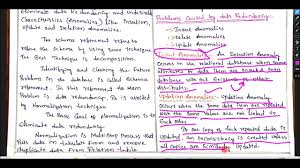 eliminate data Redundancy and Undesirable
Characteristics (Anomalies) like Insertion,
update and Deletion Anomalies.
The Schema refinement refers to
refine the Schema by using some technique
The Best technique is decomposition.
Identifying and clearing the Failure
Problems in the database is called Schema
refinement. The Main Problem in
data Redundancy. So, is avoided
by Normalization technique
The Basic Goal of Normalization is to
eliminate data redundancy
Normalization is Multi-step Process that
Puts data into tabular Form and removes
duplicate data From Relation table
Problems caused by data Redundancy:-
- Insert anomalies
- Delete anomalies
- Update anomalies
Insertion Anomaly
occurs in the relational database when some
attributes or data items are
database with out existence of other
attributes
Updation Anomalies:- Updation Anomaly
Occurs when the same data items are repeated
with the Same Values are not linked to
Each other
one copy of such repeated data is
updated an Inconsistency is created unless
all copies are Similarly updated